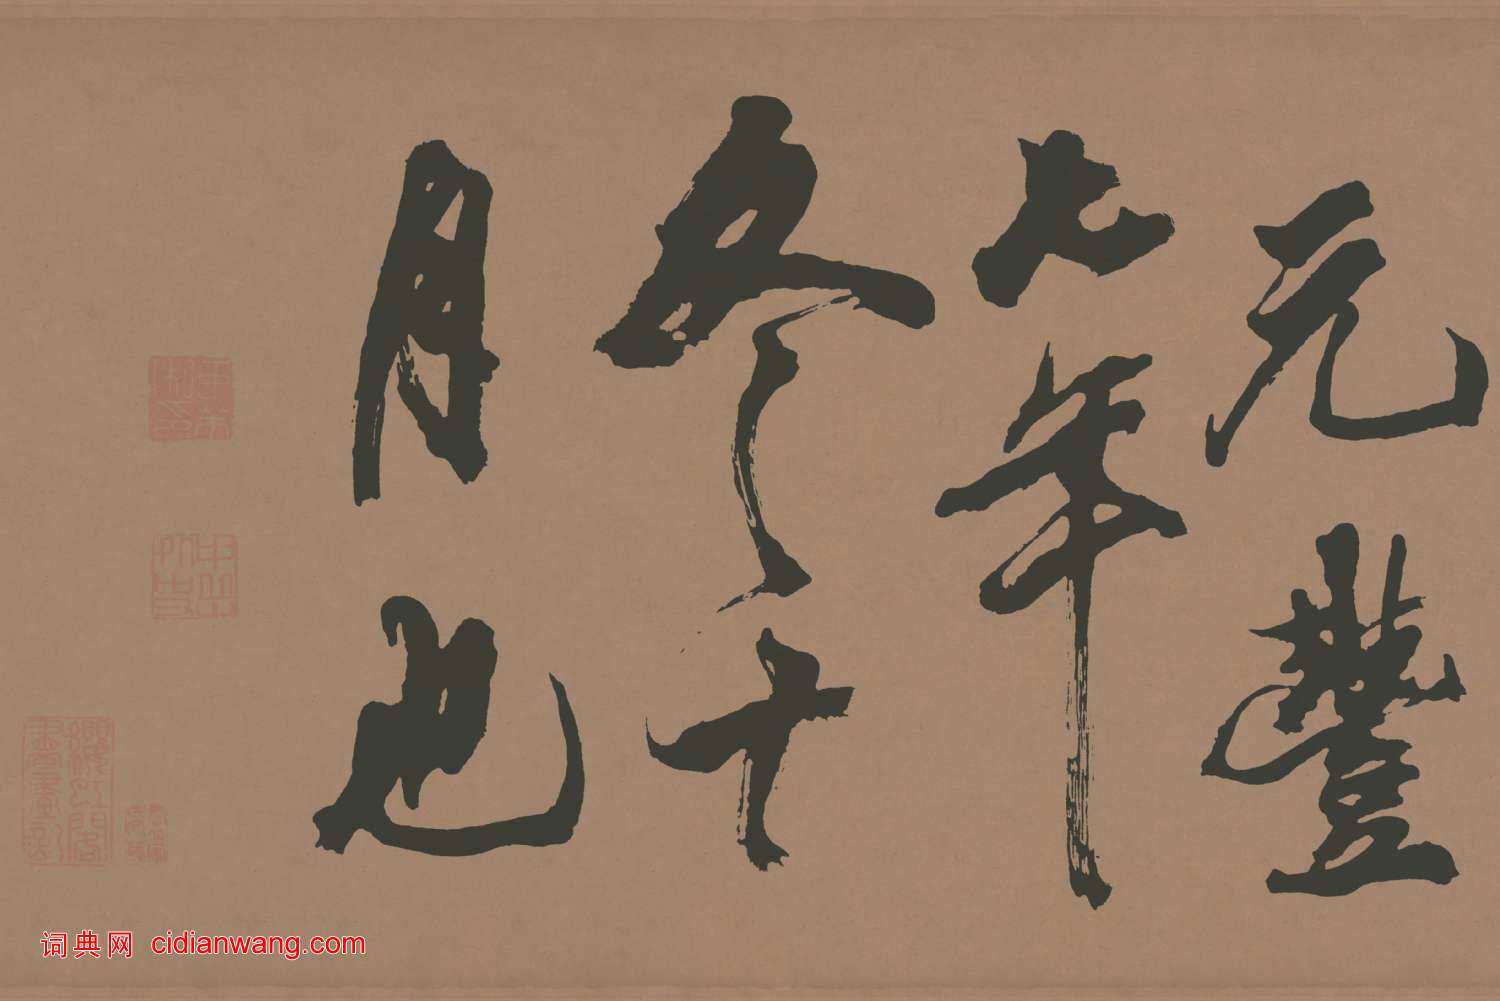 元豐
七年
冬十
月也
词典网 cidianwang.com